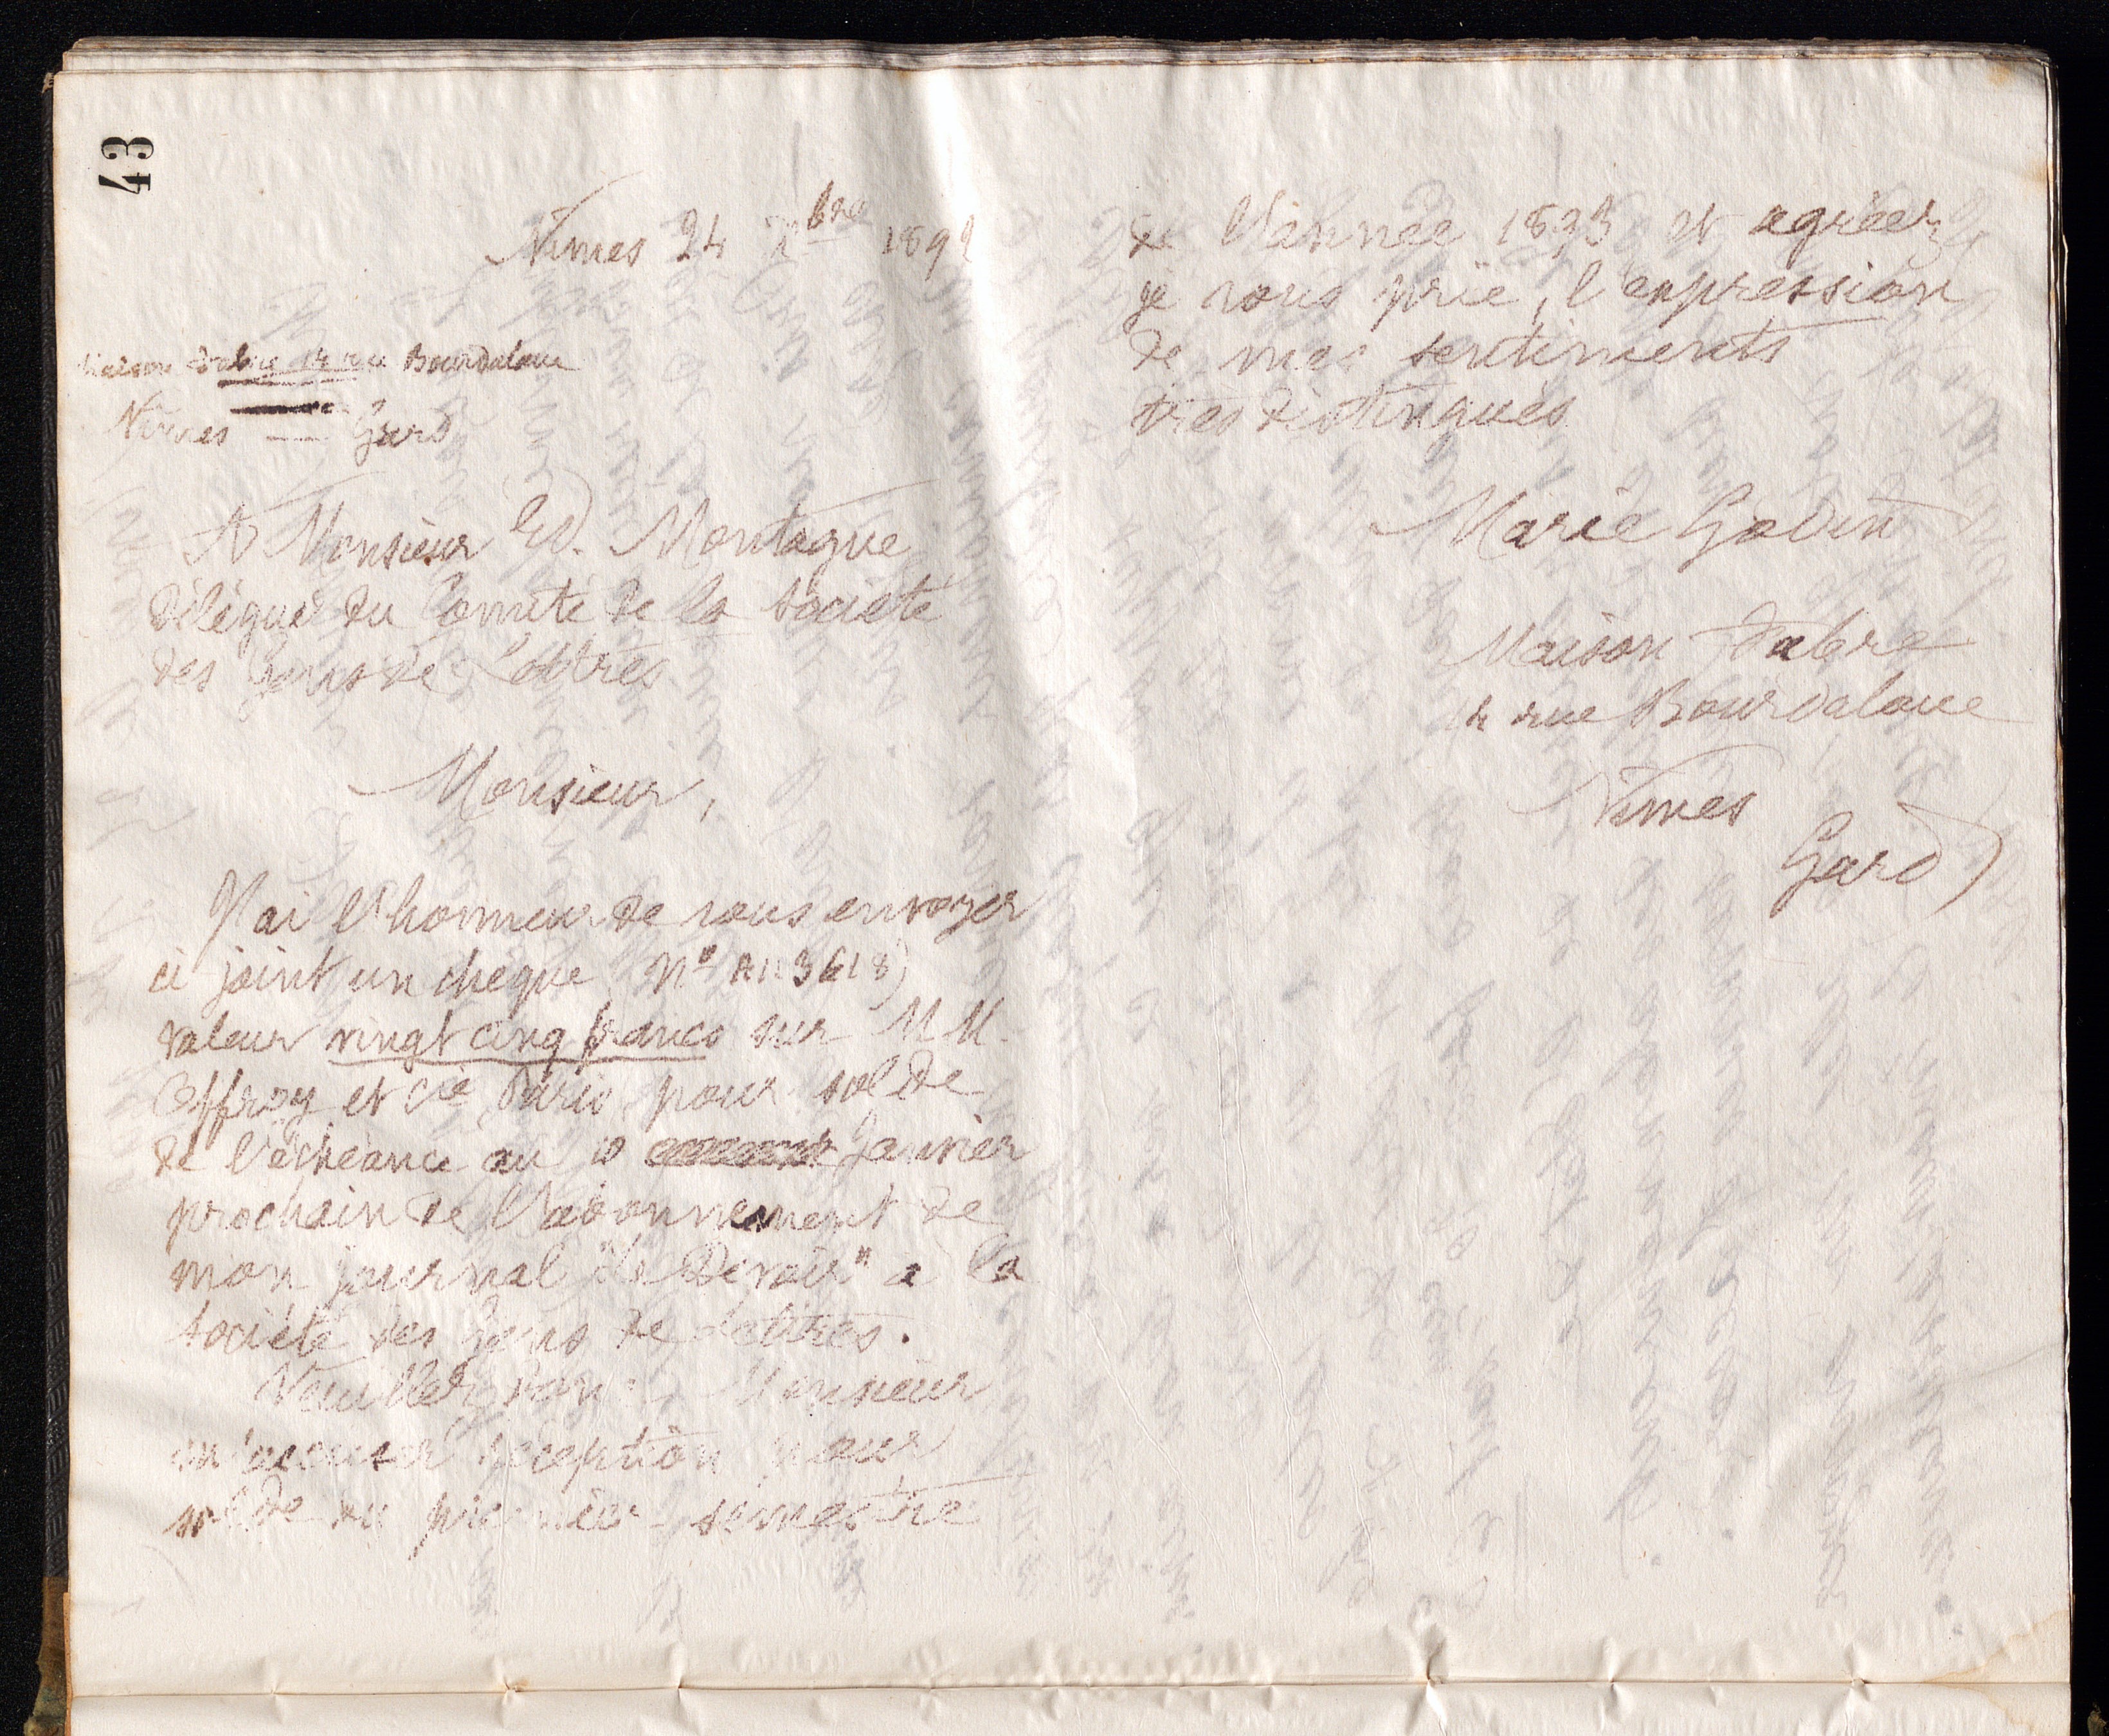 43
Nîmes 24 Xbre 1892
Maison Fabre 14 rue Bourdaloue
Nîmes — Gard
A Monsieur Ed. Montagne
Délégué du Comité de la Société
des Gens de Lettres
Monsieur,
J'ai l'honneur de vous envoyer
ci joint un chèque (N°
valeur vingt cinq francs sur M M.
Offroy et Cie Paris pour solde
de l'échéance au 10 Janvier
prochain de l'abonnement de
mon journal "le Devoir" à la
Société des Gens de Lettres.
Veuillez donc Monsieur
m'accuser réception pour
solde du premier semestre
de l'année 1893 et agréer,
je vous prie, l'expression
de mes sentiments
très distingués
Marie Godin
Maison Fabre
14 rue Bourdaloue
Nîmes
Gard